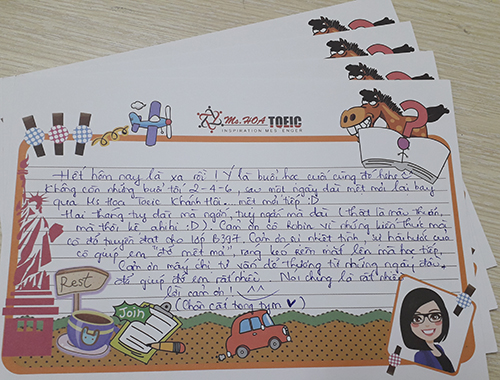 Ms. HOA TOEIC
INSPIRATION MESSENGER
Hết hôm nay là xa rồi! Ý là buổi học cuối cùng đó hehe
Không còn những buổi tối 2-4-6, sau một ngày dài mệt mỏi lại bay
qua Ms Hoa Toeic Khánh Hội... mệt mỏi tiếp :D
Hai tháng tuy dài mà ngắn, tuy ngắn mà dài (Thật là mâu thuẫn
mà thôi kệ ahihi :D). Cảm ơn cô Robin vì những kiến thức mà
cô đã truyền đạt cho lớp B397. Cảm ơn vì nhiệt tình, sự hài hước của
cô giúp em "đỡ mệt mỏi", ráng kéo rèm mắt lên mà học tiếp.
Cảm ơn mấy chị tư vấn dễ thương từ những ngày đầu
đã giúp đỡ em rất nhiều. Nói chung là rất nhiều
lời cảm ơn! ^^
(Chân cất trong tym)
Rest
Join